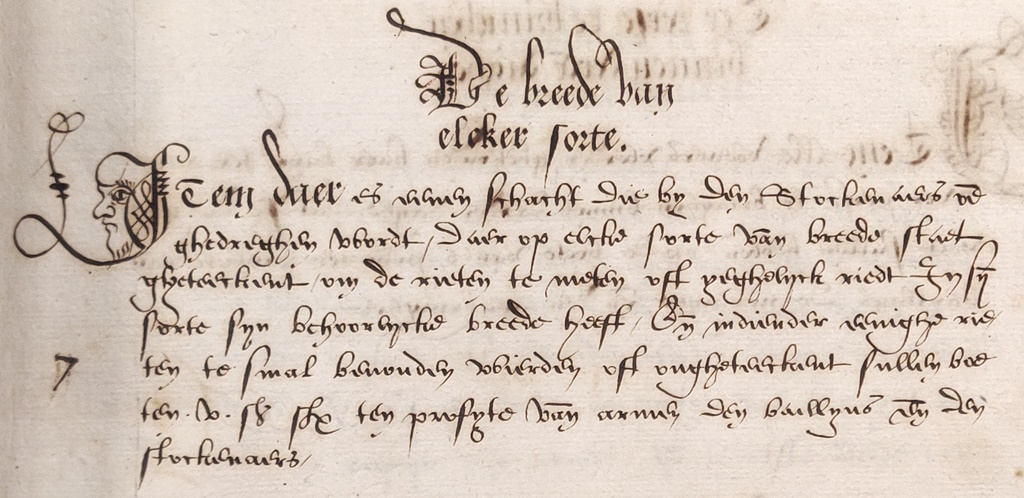 De breede van
elcker sorte.
Item daer es eenen schacht die by den Stockenaers
ghedreghen wordt, daer op elcke sorte van breede staet
gheteeckent, om de rieten te meten oft yeghelyck riedt in syn
sorte syn behoorlycke breede heeft, En indiender eenighe rie/
7 ten te smal bevonden wierden oft ongheteeckent sullen boe
ten .v. sch ten profyte van armen den baillyus en den
stockenaers,